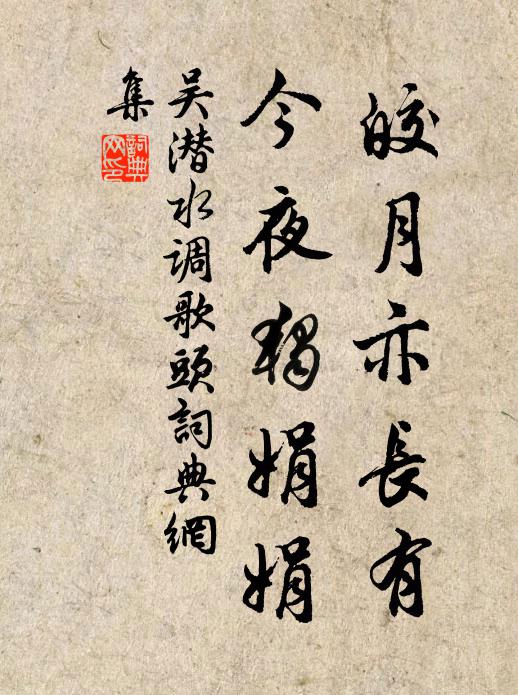 皎月亦長有
今夜獨娟娟
吴潜水调歌頭詞典網
集
詞典网印